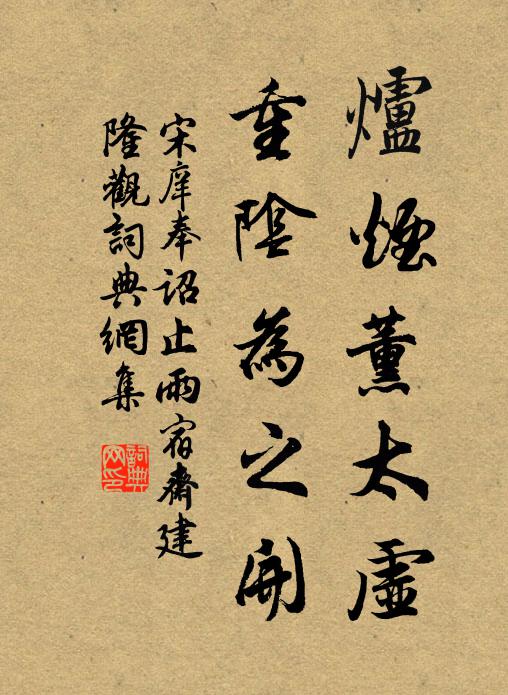 爐煙薰太虛
重陰為之開
宋庠奉詔止雨宿齋建
隆觀詞典網集
詞典
网印